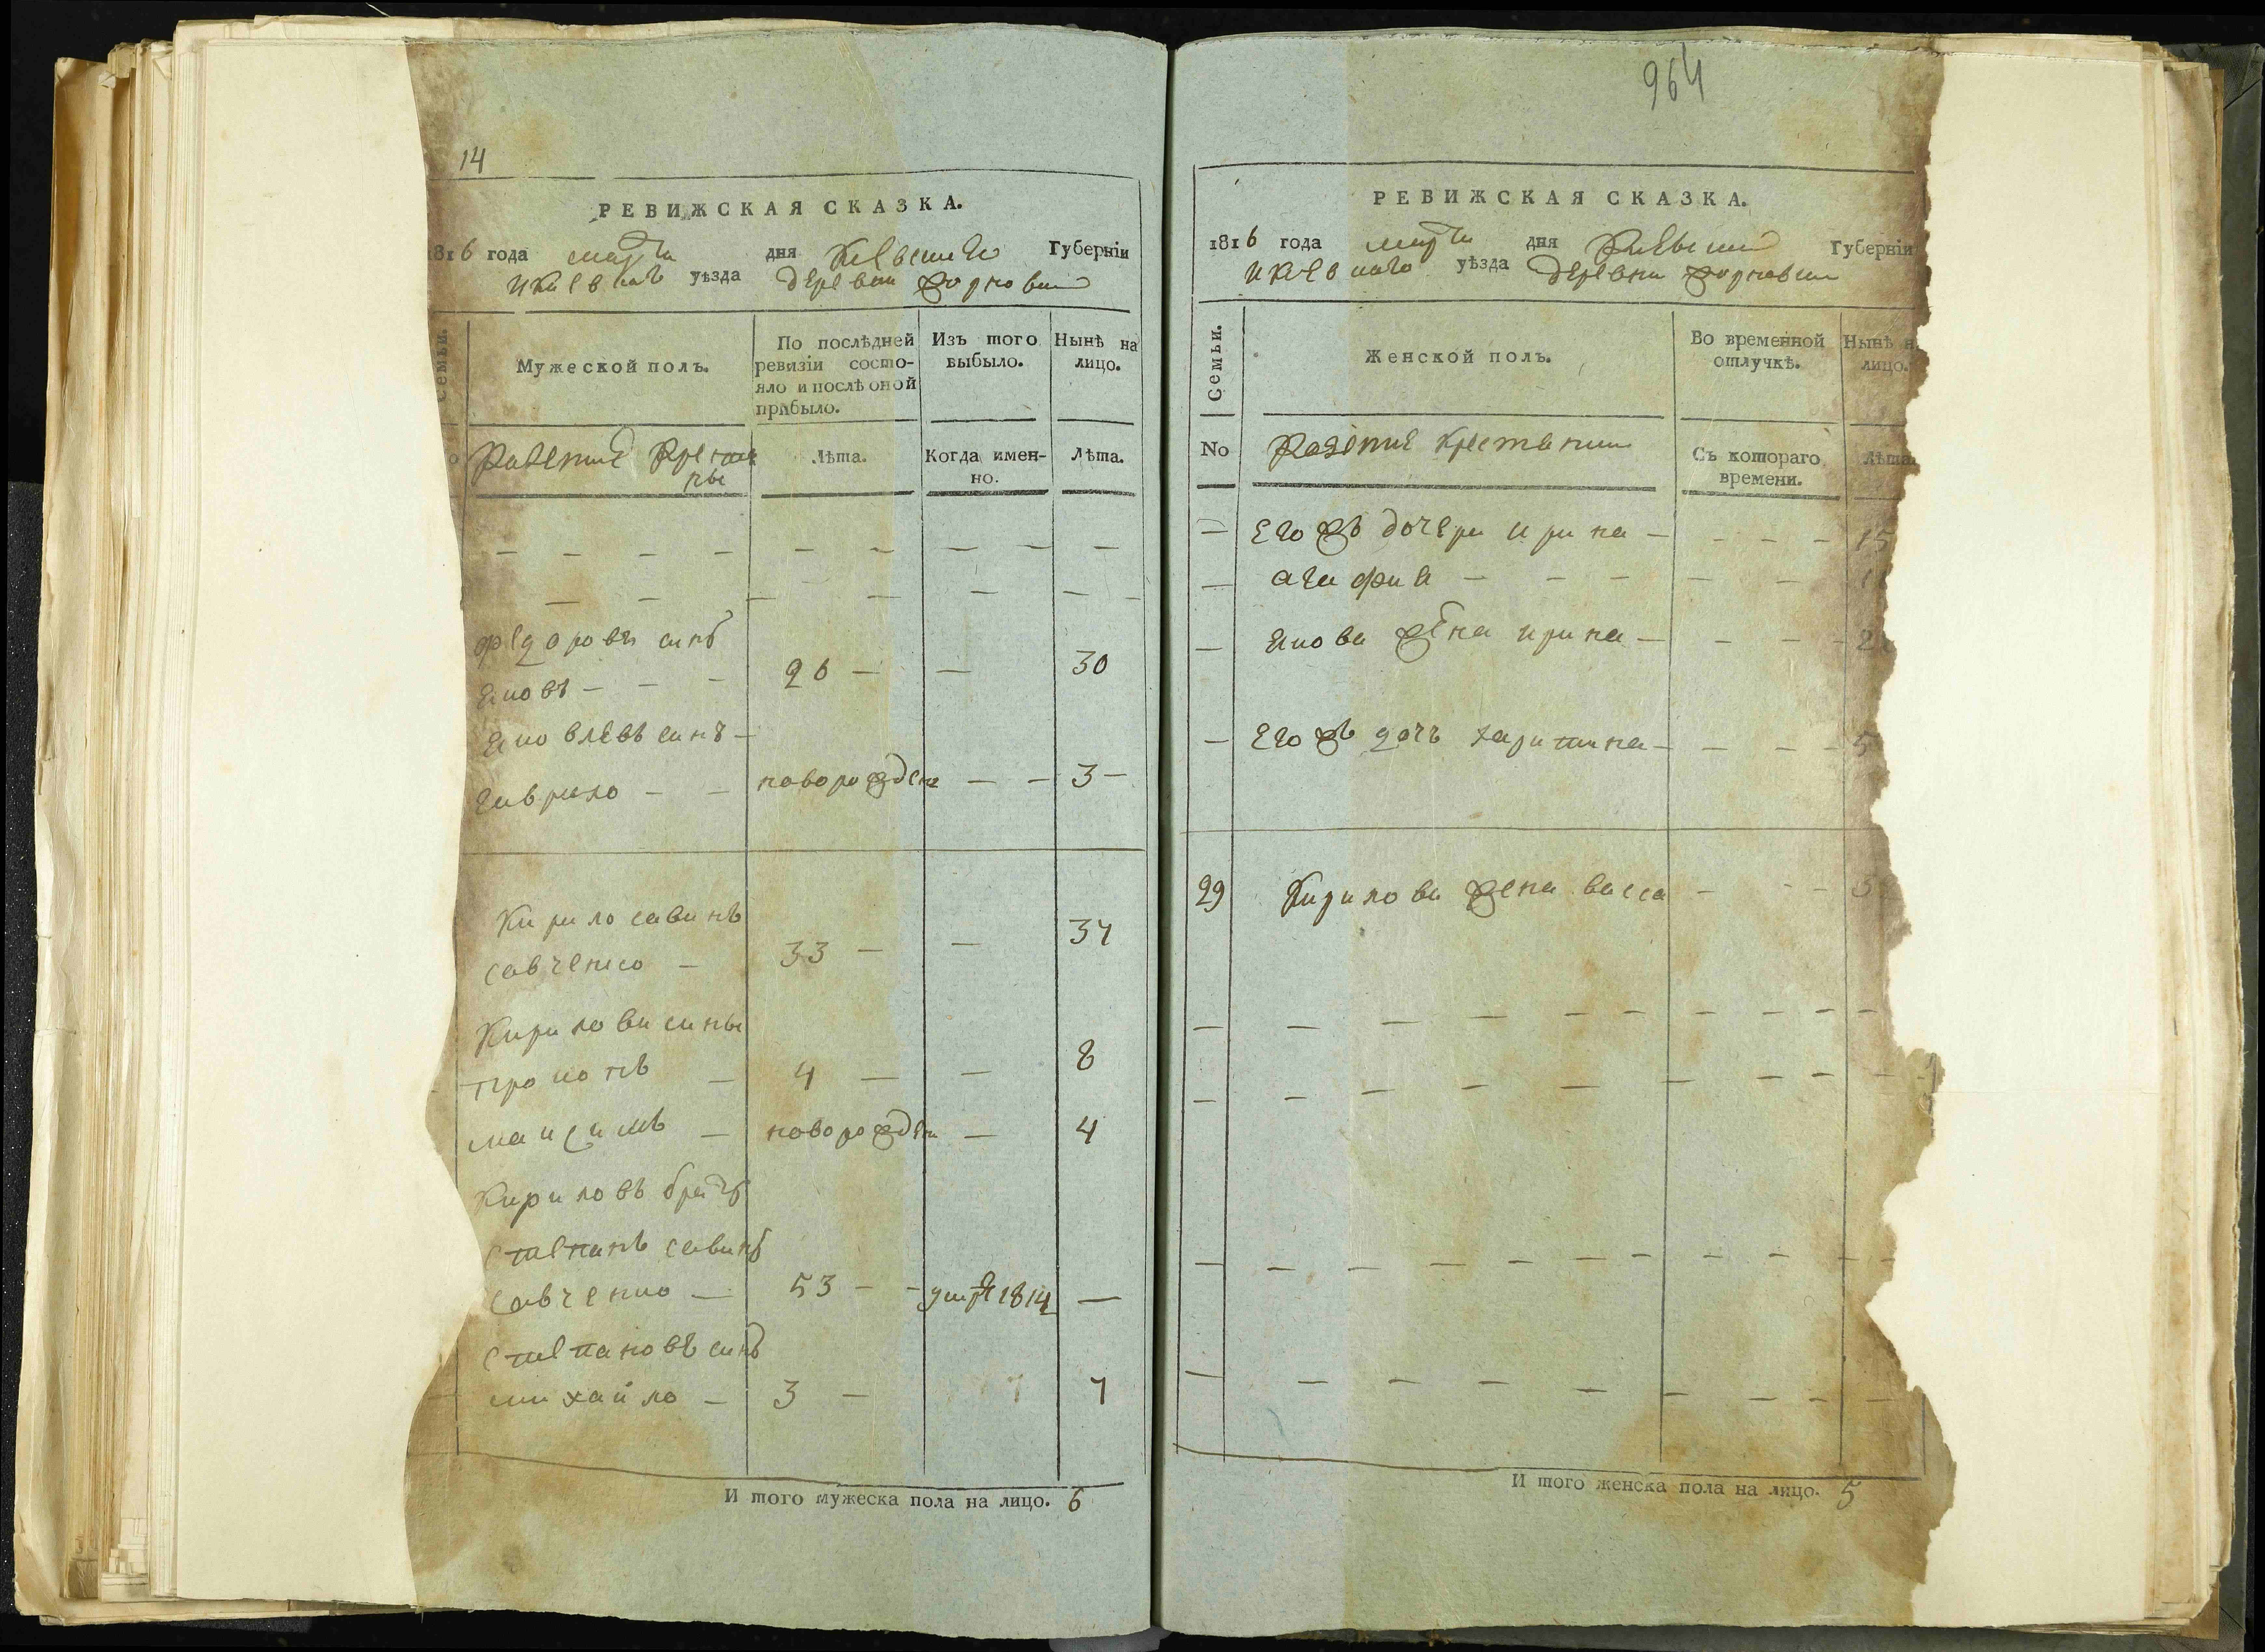 14
РЕВИЖСКАЯ СКАЗКА.
1816 года марта дня Киевской Губерніи
и Киевскаго уѣзда деревни Жорновки
Семьи.
Мужеской полъ.
По послѣдней ревизіи состояло и послѣ оной прибыло.
Изъ того выбыло.
Нынѣ на лицо.
Казенние Крестьяне
Лѣта.
Когда именно.
Лѣта.
Федоровъ синъ
Яковъ - - - 26 - - 30
Яковлевъ синъ -
Гаврило - - новорожден - - 3 -
Кирило Савинъ
Савченко - 33 - - 37
Кирилови сины
Прокопъ - 4 - - 8
Максимъ - новорожден - 4
Кириловъ братъ
Степанъ Савинъ
Савченко - 53 - - умре 1814 -
Степановъ синъ
Михайло - 3 - 7
И того мужеска пола на лицо. 6
964
РЕВИЖСКАЯ СКАЗКА.
1816 года марта дня Киевской Губерніи
и Киевскаго уѣзда деревни Жорновки
Семьи.
Женской полъ.
Во временной отлучкѣ.
Нынѣ на лицо.
No
Казение Крестянки
Съ котораго времени.
Лѣта.
- Его жъ дочери Ирина - - - - 15
- Агафия - - - - -
- Якова жена Ирина - - - -
- Его жъ дочъ Харитина - - - - 5
29 Кирилова жена Васса - - -
И того женска пола на лицо. 5